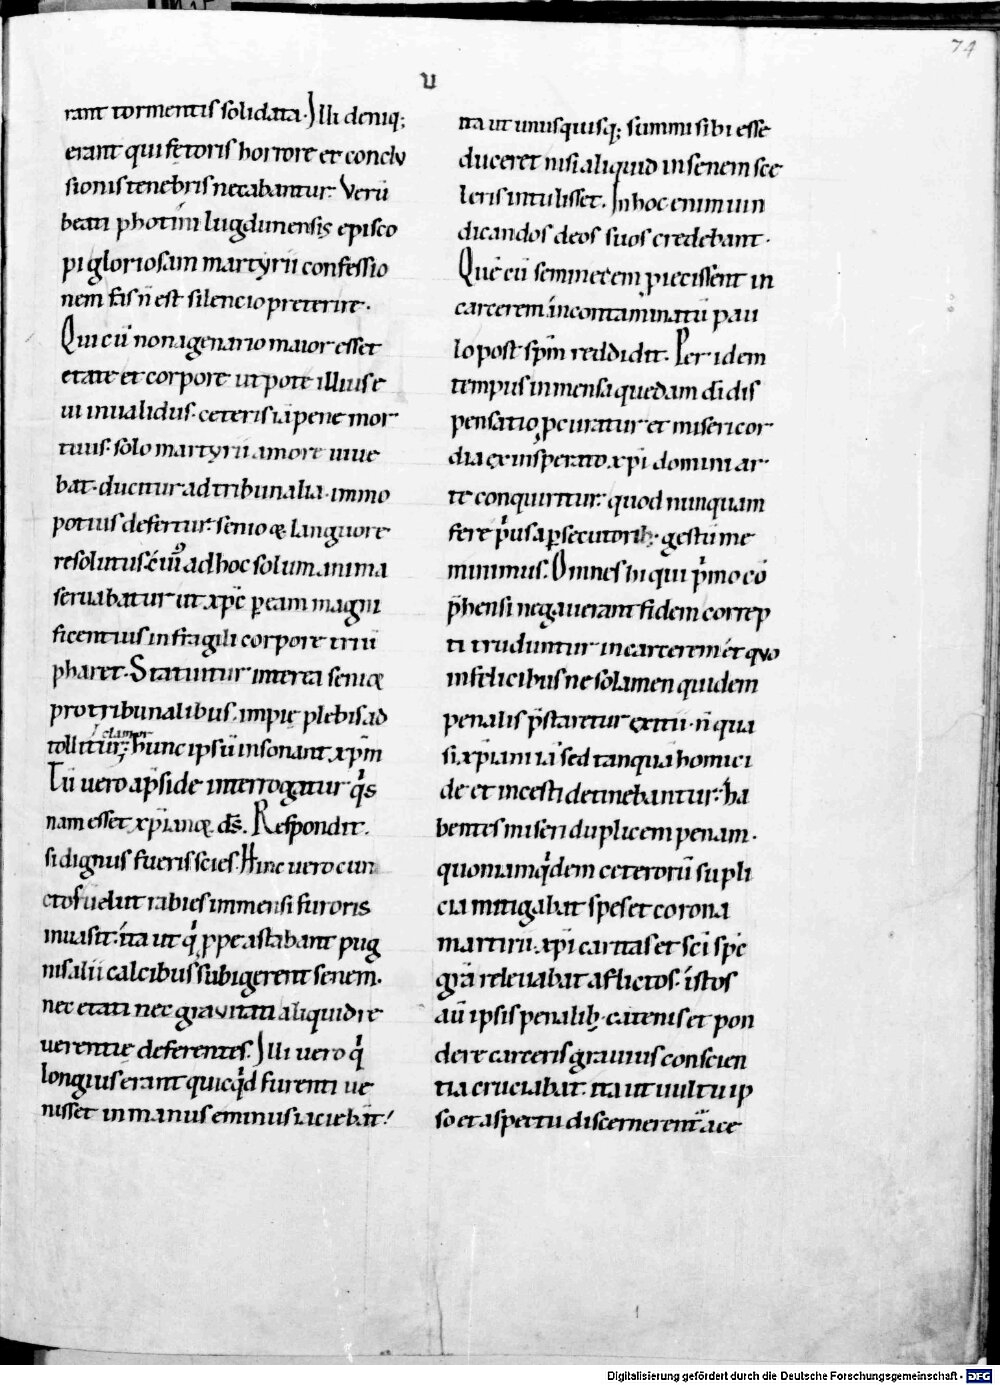 74
U
rant tormentis solidata. Illi deniq;
erant qui fętoris horrore et conclu
sionis tenebris necabantur. Verū
beati photini lugdunensis episco
pi gloriosam martyrii confessio
nem fas n̄ est silencio preterire.
Qui cū nonagenario maior esset
etate et corpore utpote illius e
ui inualidus. ceteris iā pene mor
tuus. solo martyrii amore uiue
bat. ducitur ad tribunalia. immo
potius defertur. senio &amp; languore
resolutus. ad hoc solum anima
seruabatur ut xp̄c ꝑ eam magni
ficentius in fragili corpore triū
pharet. Statuitur interea senior
pro tribunalibus. impię plebis ad
clamor
tollitur. hunc ipsū insonant xp̄m
Tū uero a p̄side interrogatur qͥs
nam esset xp̄ianoꝝ ds̄. Respondit.
si dignus fueris scies. Hinc uero cun
ctos uelut rabies immensi furoris
inuasit. ita ut qͥ ꝓpe astabant pug
nis alii calcibus subigerent senem.
nec etati nec grauitati aliquid re
uerentię deferentes. Illi uero qͥ
longius erant quicqͥd furenti ue
nisset in manus eminus iaciebāt.
ita ut unusquisq; summi sibi esse
duceret nisi aliquid in senem sce
leris intulisset. In hoc enim uin
dicandos deos suos credebant.
Quē cū seminecem ꝓiecissent in
carcerem. incontaminatū pau
lo post sp̄m reddidit. Per idem
tempus inmensa quedam di dis
pensatio ꝓcuratur et misericor
dia ex insperato xp̄i domini ar
te conquiritur. quod nunquam
fere pͥus a ꝑsecutorib; gestū me
minimus. Omnes hi qui pͥmo cō
p̄hensi negauerant fidem correp
ti truduntur in carcerem. et quo
infelicibus ne solamen quidem
penalis p̄staretur exitii. n̄ qua
si xp̄iani iā sed tanquā homici
de et incesti detinebantur. ha
bentes miseri duplicem penam.
quoniam qͥdem ceterorū supli
cia mitigabat spes et corona
martirii. xp̄i caritas et sc̄i sp̄c
gr̄a releuabat aflictos. istos
aū ipsis penalib; catenis et pon
dere carceris grauius conscien
tia cruciabat. ita ut uultu ip
so et aspectu discernerent̄ a ce
Digitalisierung gefördert durch die Deutsche Forschungsgemeinschaft - DFG